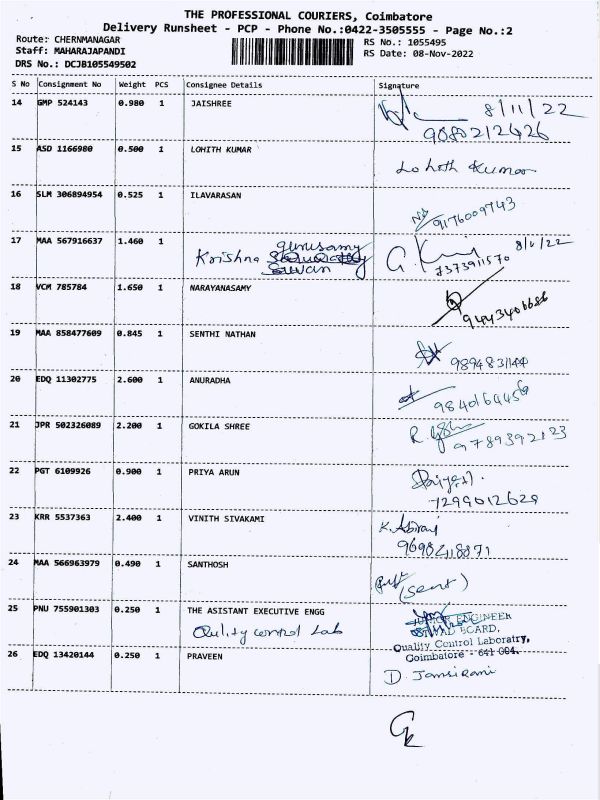 THE PROFESSIONAL COURIERS, Coimbatore
Delivery Runsheet - PCP - Phone No.:0422-3505555 - Page No.:2
Route: CHERNMANAGAR
Staff: MAHARAJAPANDI
DRS No.: DCJB105549502
RS No.: 1055495
RS Date: 08-Nov-2022
S No Consignment No Weight PCS Consignee Details Signature
14 GMP 524143 0.980 1 JAISHREE 8/11/22
15 ASD 1166980 0.500 1 LOHITH KUMAR
Lohith Kumar
16 SLM 306894954 0.525 1 ILAVARASAN
9176009743
17 MAA 567916637 1.460 1 8/11/22
Krishna gurusamy
7373911570
18 VCM 785784 1.650 1 NARAYANASAMY
9443406686
19 MAA 858477609 0.845 1 SENTHI NATHAN
9894831144
20 EDQ 11302775 2.600 1 ANURADHA
21 JPR 502326089 2.200 1 GOKILA SHREE
9789392123
22 PGT 6109926 0.900 1 PRIYA ARUN
7299012629
23 KRR 5537363 2.400 1 VINITH SIVAKAMI
9698418871
24 MAA 566963979 0.490 1 SANTHOSH
25 PNU 755901303 0.250 1 THE ASISTANT EXECUTIVE ENGG
Qulity control Lab
ENGINEER
BOARD,
Quality Control Laboratry,
Coimbatore - 641 004.
26 EDQ 13420144 0.250 1 PRAVEEN
D. Jansirani